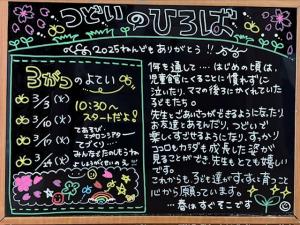 つどいのひろば
2025ねんどもありがとう!!
3がつのよてい
3/3 (火)
3/10 (火)
3/17 (火)
3/24 (火)
10:30〜
スタートだよ!
てあそび
エプロンシアター
てづくり…
みんなでたのしもうね
年を通して…はじめの頃は、
児童館にくることに慣れずに
泣いたり、ママの後ろにかくれていた
子どもたち。
先生とごあいさつができるようになったり
お友達とあそんだり、つどいで
楽しくすごせるようになり、すっかり
ココロもカラダも成長した姿が
見ることができ、先生もとても嬉しい
です。
これからも、子ども達がすくすくと育つこと
心から願っています。
…春はすぐそこです